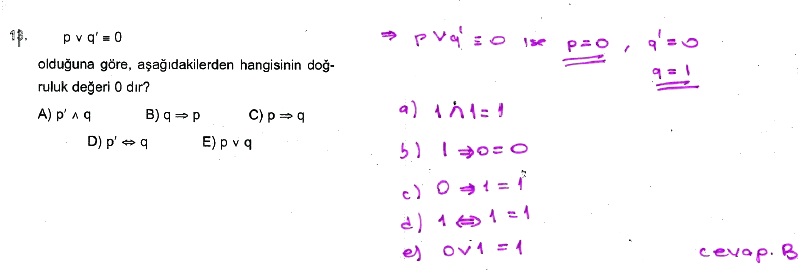 13. p ∨ q' ≡ 0
olduğuna göre, aşağıdakilerden hangisinin doğ-
ruluk değeri 0 dır?
A) p' ∧ q B) q ⇒ p C) p ⇒ q
D) p' ⇔ q E) p ∨ q
⇒ p ∨ q' ≡ 0 ise p=0 , q'=0
q=1
a) 1 ∧ 1 = 1
b) 1 ⇒ 0 = 0
c) 0 ⇒ 1 = 1
d) 1 ⇔ 1 = 1
e) 0 ∨ 1 = 1
cevap. B